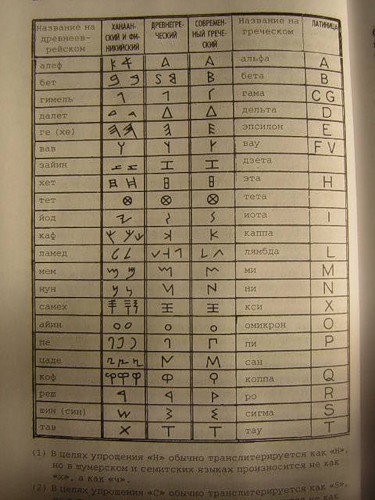 Название на древнеев-рейском | ХАНААН-СКИЙ И ФИ-НИКИЙСКИЙ | ДРЕВНЕГРЕ-ЧЕСКИЙ | СОВРЕМЕН-НЫЙ ГРЕЧЕ-СКИЙ | Название на греческом | ЛАТИНИЦА
алеф альфа A
бет бета B
гимель гама C G
далет дельта D
ге (хе) эпсилон E
вав вау F V
зайин дзета
хет эта H
тет тета
йод иота I
каф каппа
ламед лямбда L
мем ми M
нун ни N
самех кси X
айин омикрон O
пе пи P
цаде сан
коф коппа Q
реш ро R
шин (син) сигма S
тав тау T
(1) В целях упрощения «H» обычно транслитерируется как «H»,
но в шумерском и семитских языках произносится не как
«х», а как «ч».
(2) В целях упрощения «С» обычно транслитерируется как «S»,